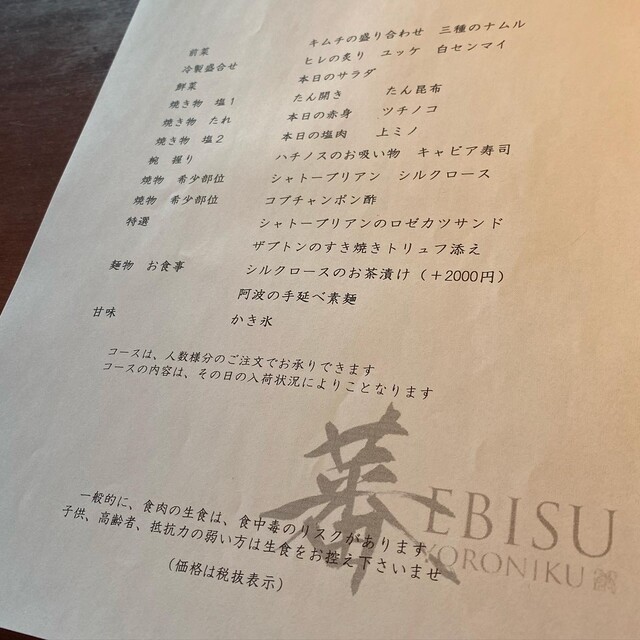 前菜 キムチの盛り合わせ 三種のナムル
冷製盛合せ ヒレの炙り ユッケ 白センマイ
鮮菜 本日のサラダ
焼き物 塩1 たん開き たん昆布
焼き物 たれ 本日の赤身 ツチノコ
焼き物 塩2 本日の塩肉 上ミノ
椀 握り ハチノスのお吸い物 キャビア寿司
焼物 希少部位 シャトーブリアン シルクロース
焼物 希少部位 コプチャンポン酢
特選 シャトーブリアンのロゼカツサンド
ザブトンのすき焼きトリュフ添え
麺物 お食事 シルクロースのお茶漬け（＋2000円）
阿波の手延べ素麺
甘味 かき氷
コースは、人数様分のご注文でお承りできます
コースの内容は、その日の入荷状況によりことなります
蕃 EBISU
YORONIKU
一般的に、食肉の生食は、食中毒のリスクがあります
子供、高齢者、抵抗力の弱い方は生食をお控え下さいませ
（価格は税抜表示）